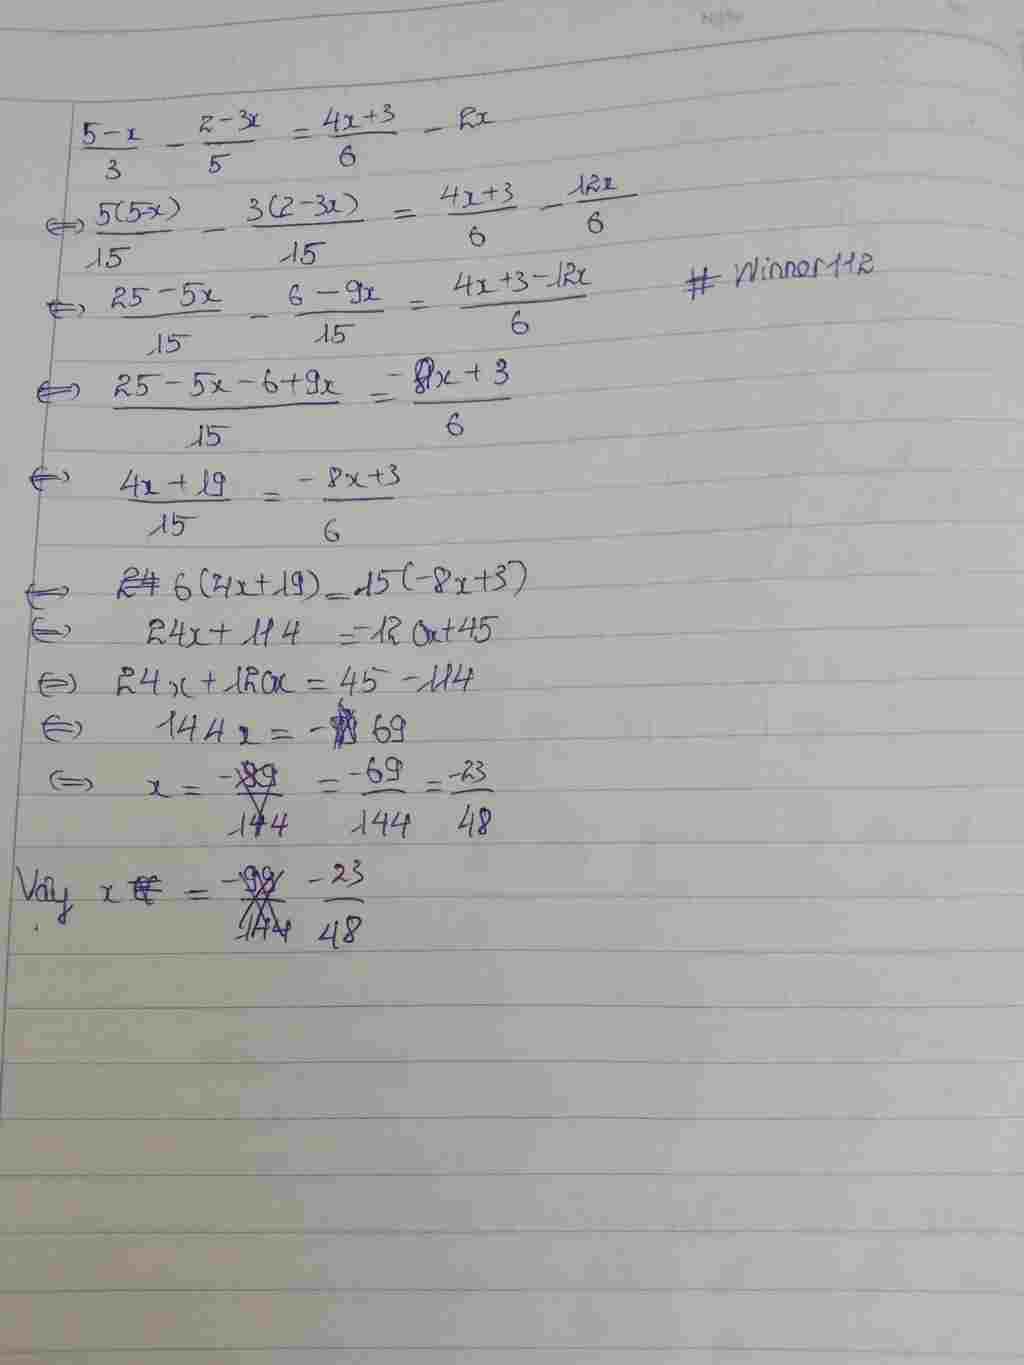 (5-x)/3 - (2-3x)/5 = (4x+3)/6 - 2x
⇔ 5(5-x)/15 - 3(2-3x)/15 = (4x+3)/6 - 12x/6
⇔ (25-5x)/15 - (6-9x)/15 = (4x+3-12x)/6 # Winner112
⇔ (25-5x-6+9x)/15 = (-8x+3)/6
⇔ (4x+19)/15 = (-8x+3)/6
⇔ 6(4x+19) = 15(-8x+3)
⇔ 24x+114 = -120x+45
⇔ 24x+120x = 45-114
⇔ 144x = -69
⇔ x = -69/144 = -23/48
Vậy x = -23/48